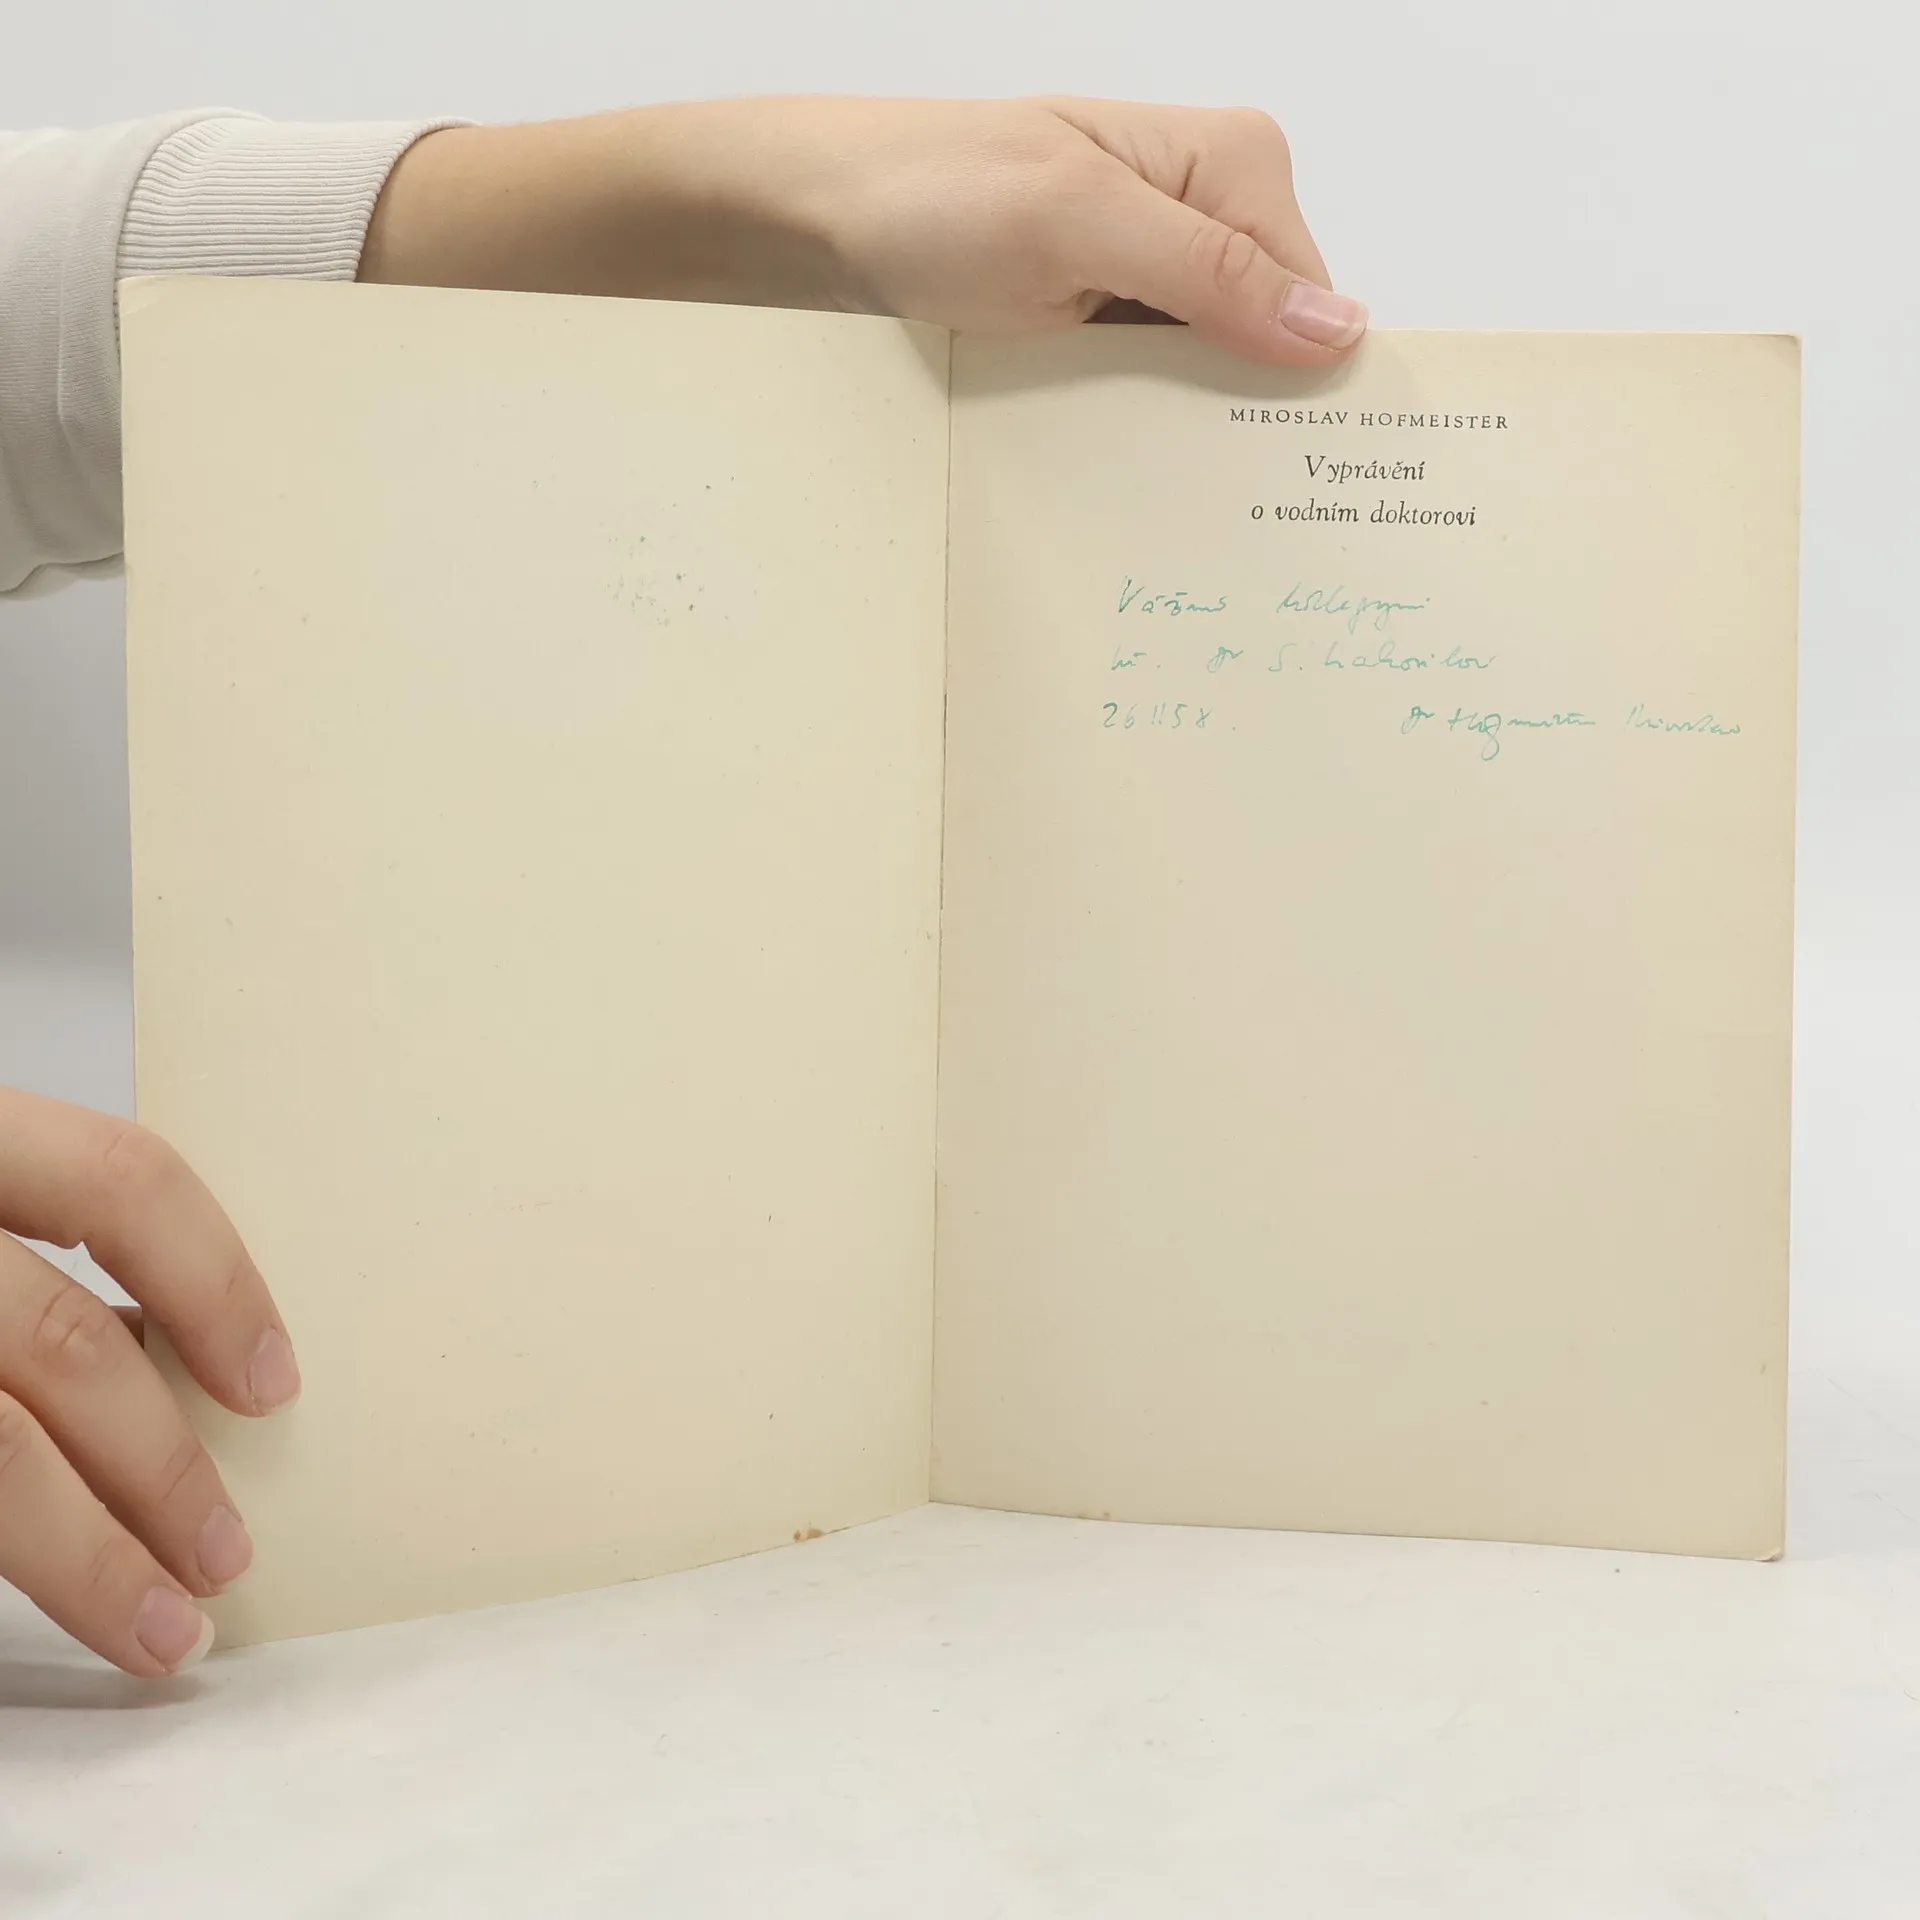 MIROSLAV HOFMEISTER
Vyprávění
o vodním doktorovi
Vážené kolegyni
Dr S.
26 II 58. Dr Hofmeister Miroslav